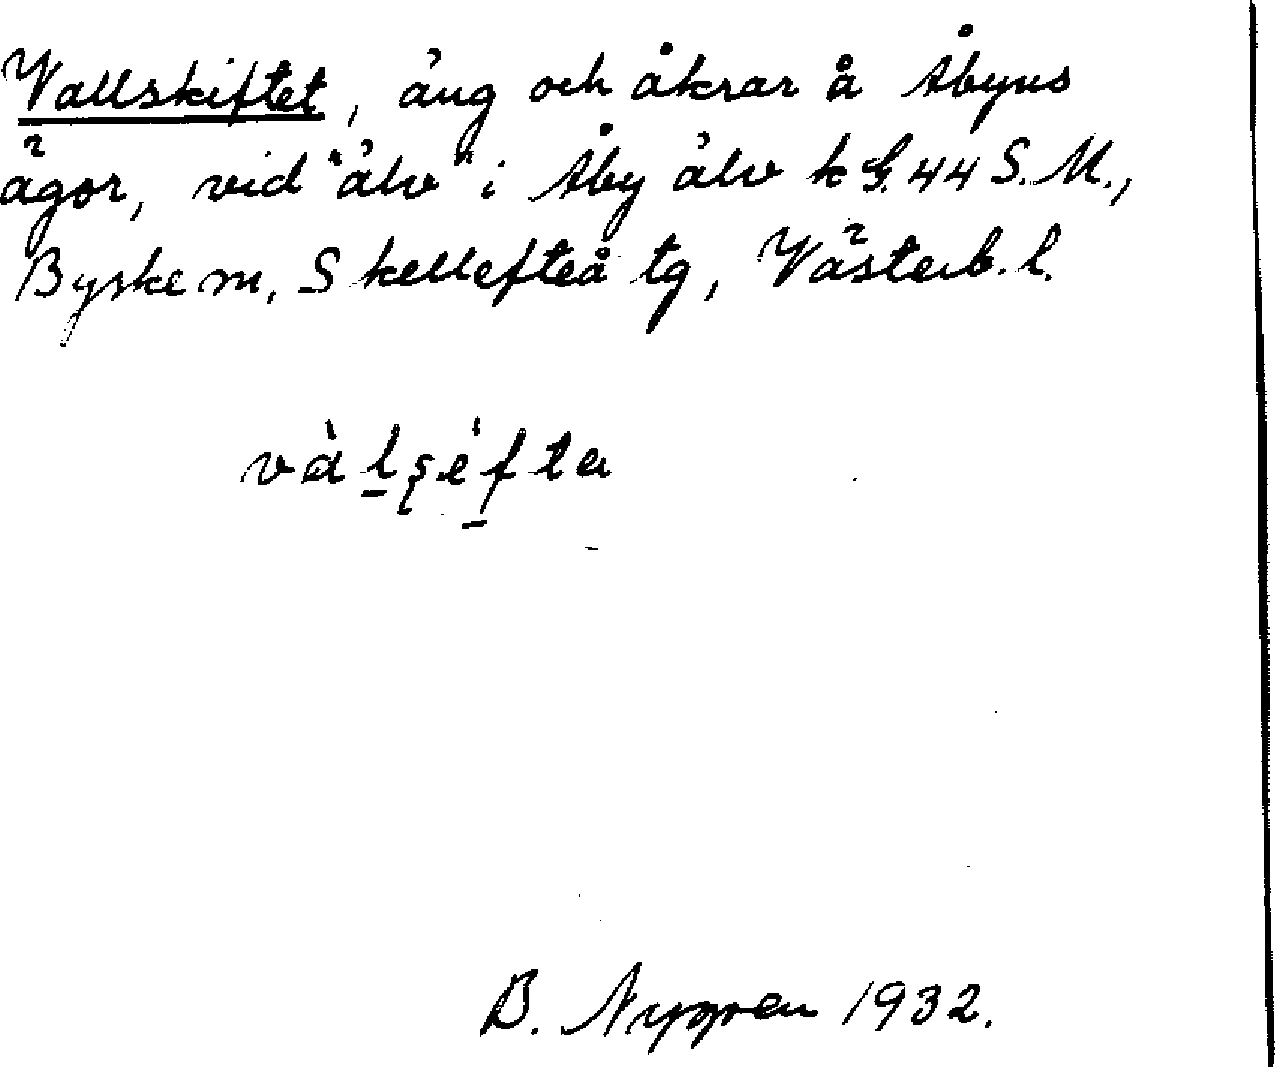 Vallskiftet, äng och åkrar å Åbyns
ägor, vid "älv" i Åby älv k G. 44 S. M.,
Byske sn, Skellefteå tg, Västerb. l.
B. Nygren 1932.